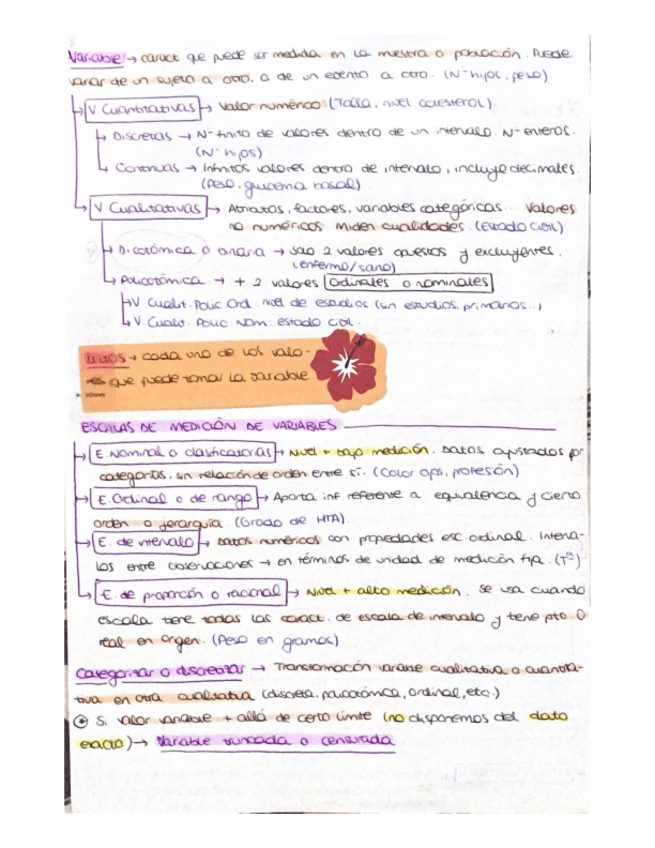 Variable → caract. que puede ser medida en la muestra o población. Puede
variar de un sujeto a otro, o de un evento a otro. (Nº hijos, peso)
V Cuantitativas → Valor numérico (Talla, nivel colesterol)
Discretas → Nº finito de valores dentro de un intervalo. Nº enteros.
(Nº hijos)
Continuas → Infinitos valores dentro de intervalo, incluye decimales.
(Peso, glucemia basal)
V Cualitativas → Atributos, factores, variables categóricas... Valores
no numéricos. Miden cualidades. (Estado civil)
Dicotómica o binaria → solo 2 valores opuestos y excluyentes.
(enfermo/sano)
Policotómica → + 2 valores Ordinales o nominales
V Cualit. Polic Ord. nivel de estudios (sin estudios, primarios...)
V Cualit. Polic. Nom. estado civil.
Datos → cada uno de los valo-
res que puede tomar la variable
©Disney
ESCALAS DE MEDICIÓN DE VARIABLES
E. Nominal o clasificatorias → Nivel + bajo medición. Datos ajustados por
categorías, sin relación de orden entre sí. (Color ojos, profesión)
E. Ordinal o de rango → Aporta inf. referente a equivalencia y cierto
orden o jerarquía. (Grado de HTA)
E. de intervalo → Datos numéricos con propiedades esc. ordinal. Interva-
los entre observaciones → en términos de unidad de medición fija. (Tª)
E. de proporción o racional → Nivel + alto medición. Se usa cuando
escala tiene todas las caract. de escala de intervalo y tiene pto 0
real en origen. (Peso en gramos)
Categorizar o discretizar → Transformación variable cualitativa o cuantita-
tiva en otra cualitativa (discreta, policotómica, ordinal, etc.)
Si valor variable + allá de cierto límite (no disponemos del dato
exacto) → Variable truncada o censurada.